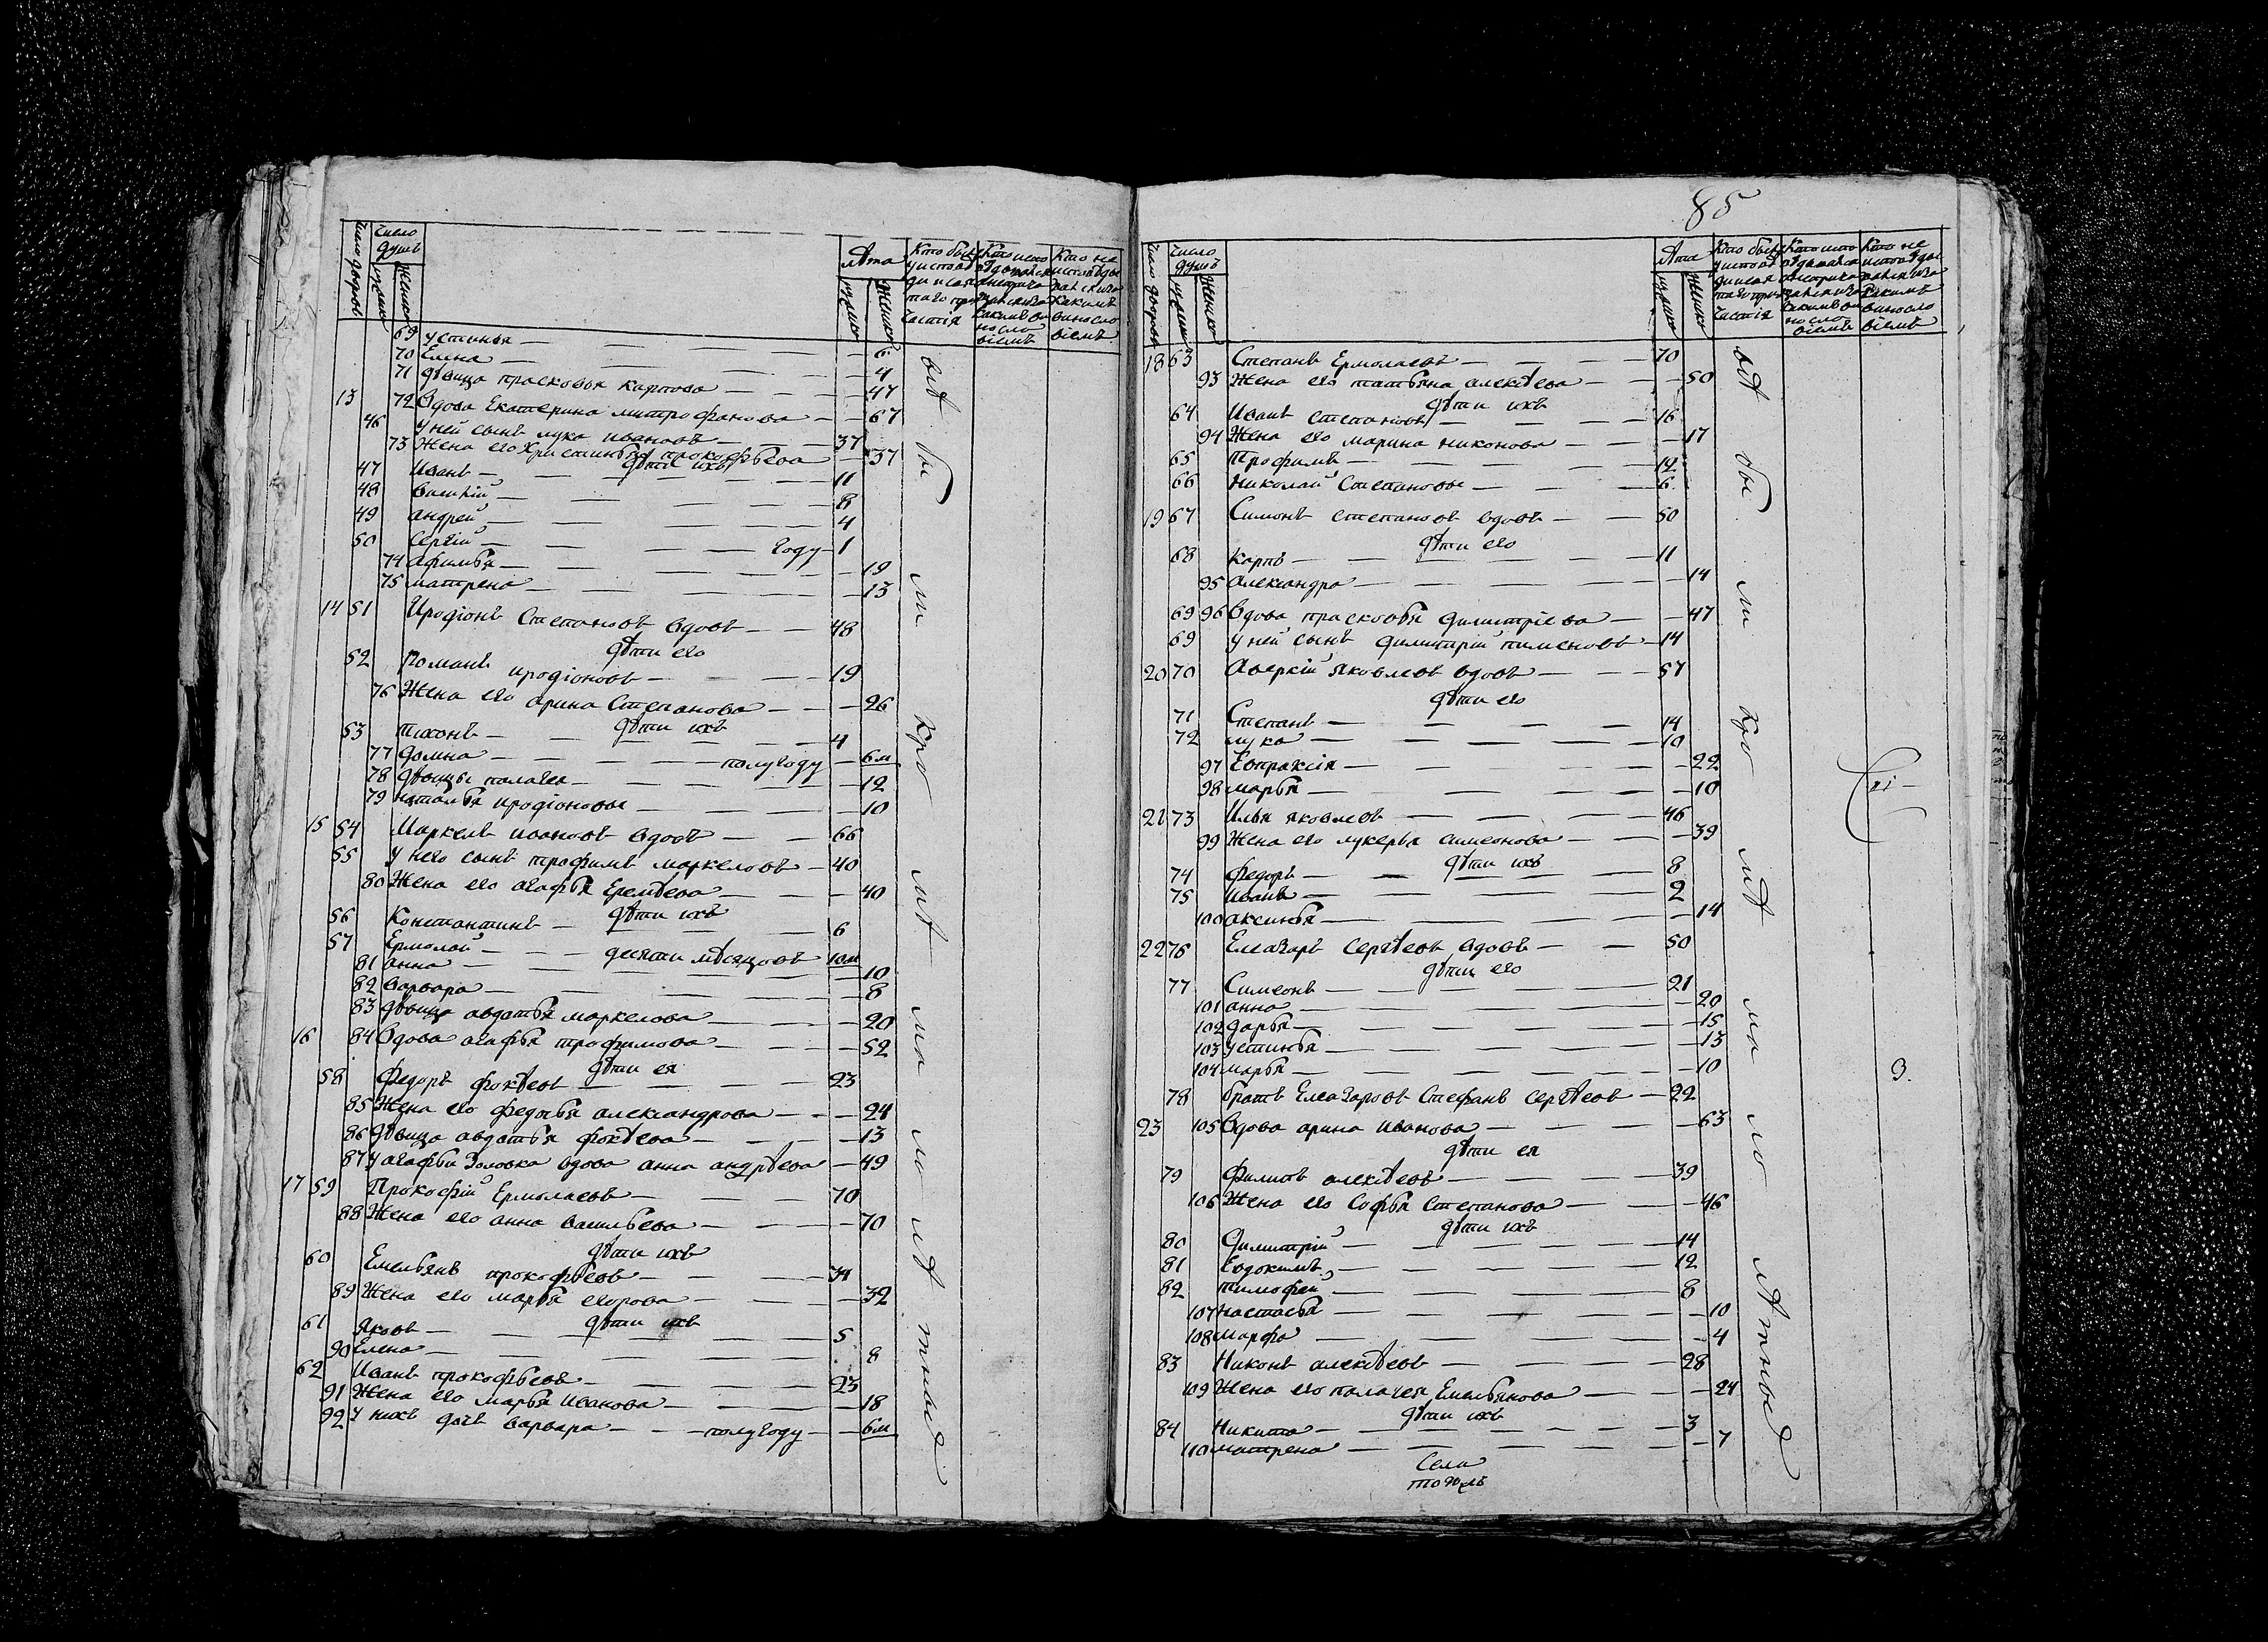 Число дворовъ
Число душъ
мужеска
женска
Лѣта
мужеска
женска
69 устинья — 6
70 Елена — 4
71 дѣвица прасковья карпова — 47
13 72 Вдова Екатерина митрофанова — 67
46 у ней сынъ лука ивановъ — 37
73 Жена его Христинья прокофьева — 37
дѣти ихъ
47 Иванъ — 11
48 василій — 8
49 андрей — 4
50 Сергій — году — 1
74 афимья — 19
75 матрена — 13
14 51 Иродіонъ Степановъ вдовъ — 48
дѣти его
52 Романъ иродіоновъ — 19
76 Жена его арина Степанова — 26
дѣти ихъ
53 тихонъ — 4
77 домна — полугоду — 6м
78 дѣвицы палагея — 12
79 наталья иродіоновы — 10
15 54 Маркелъ ивановъ вдовъ — 66
55 у него сынъ трофимъ маркеловъ — 40
80 Жена его агафья Еремѣева — 40
дѣти ихъ
56 Константинъ — 6
57 Ермолай — десяти мѣсяцовъ 10м
81 анна — 10
82 варвара — 8
83 дѣвица авдотья маркелова — 20
16 84 Вдова агафья трофимова — 52
дѣти ея
58 Федоръ фокѣевъ — 23
85 Жена его федосья александрова — 24
86 дѣвица авдотья фокѣева — 13
87 у агафьи золовка вдова анна андрѣева — 49
17 59 Прокофій Ермолаевъ — 70
88 Жена его анна васильева — 70
дѣти ихъ
60 Емельянъ прокофьевъ — 34
89 Жена его марья егорова — 32
дѣти ихъ
61 яковъ — 5
90 Елена — 8
62 Иванъ прокофьевъ — 23
91 Жена его марья Иванова — 18
92 у нихъ дочь варвара — полугоду — 6м
85
Число дворовъ
Число душъ
мужеска
женска
Лѣта
мужеска
женска
18 63 Степанъ Ермолаевъ — 70
93 Жена его татьяна алексѣева — 50
дѣти ихъ
64 Иванъ Степановъ — 16
94 Жена его марина никонова — 17
65 трофимъ — 12
66 николай Степановы — 6
19 67 Симонъ степановъ вдовъ — 50
дѣти его
68 карпъ — 11
95 александра — 14
69 96 Вдова прасковья димитріева — 47
69 у ней сынъ димитрій пименовъ — 14
20 70 Аверкій яковлевъ вдовъ — 57
дѣти его
71 Степанъ — 14
72 лука — 10
97 Еопраксія — 22
98 марья — 10
21 73 Илья яковлевъ — 46
99 Жена его лукерья симеонова — 39
дѣти ихъ
74 федоръ — 8
75 иванъ — 2
100 аксинья — 14
22 76 Елеазаръ сергѣевъ вдовъ — 50
дѣти его
77 Симеонъ — 21
101 анна — 20
102 дарья — 15
103 устинья — 13
104 марья — 10
78 братъ Елеазаровъ Стефанъ сергѣевъ — 22
23 105 Вдова арина иванова — 63
дѣти ея
79 филипъ алексѣевъ — 39
106 Жена его Софья Степанова — 46
дѣти ихъ
80 димитрій — 14
81 Евдокимъ — 12
82 тимофей — 8
107 настасья — 10
108 марфа — 4
83 Никонъ алексѣевъ — 28
109 Жена его палагея Емельянова — 24
дѣти ихъ
84 Никита — 3
110 матрена — 7
Села